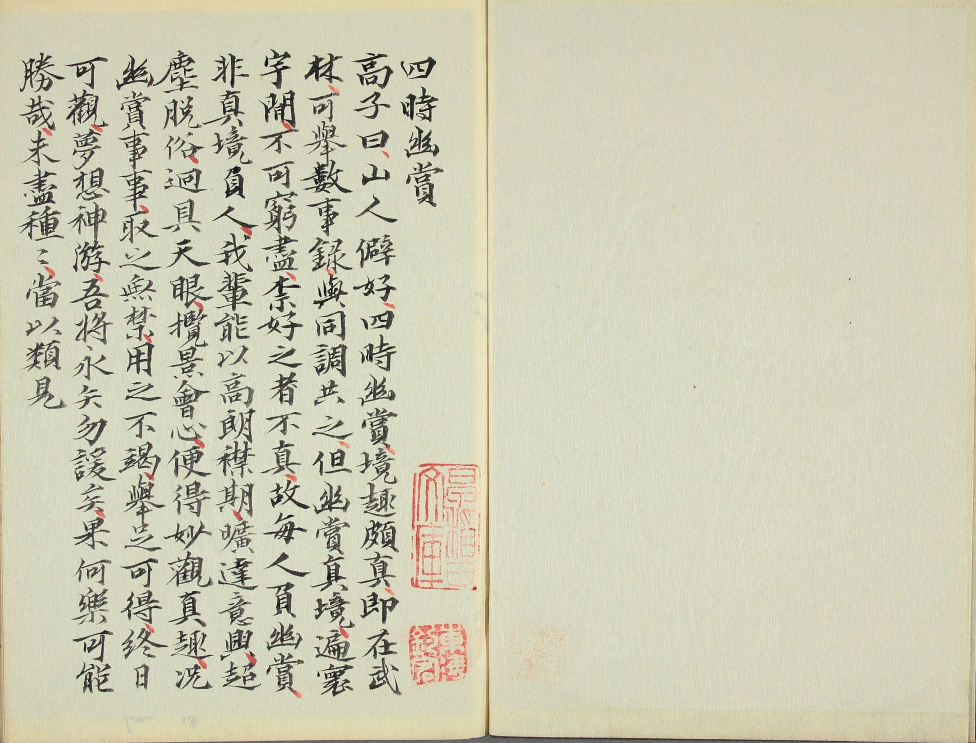 四時幽賞
高子曰、山人癖好、四時幽賞、境趣頗真、即在武
林、可舉數事、錄與同調共之、但幽賞真境、遍寰
宇間、不可窮盡、柰好之者不真、故每人負幽賞、
非真境負人、我輩能以高朗襟期、曠達意興、超
塵脫俗、迥具天眼、攬景會心、便得妙觀真趣、況
幽賞事事、取之無禁、用之不竭、舉足可得、終日
可觀、夢想神游、吾將永矢勿諼矣、果何樂可能
勝哉、未盡種〻、當以類見